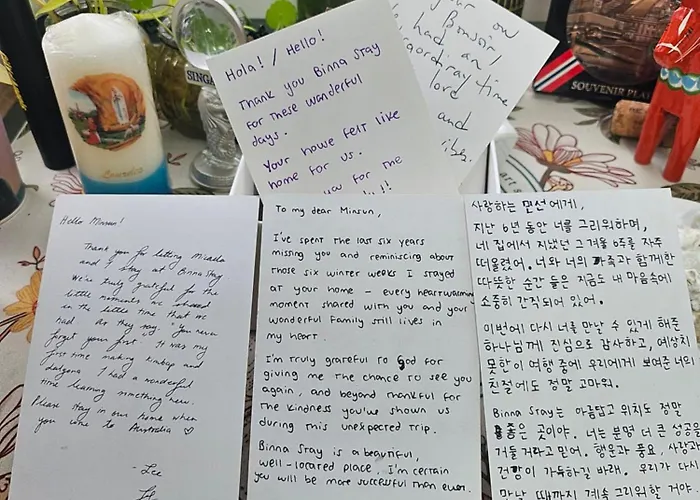 SINGA
SOUVENIR PLAT
Lourdes
Hola! / Hello!
Thank you Binna Stay
for these wonderful
days.
Your house felt like
home for us.
you for the
Bonsoir,
had an
time
and
Hello Minsun!
Thank you for letting Micaela
and I stay at Binna Stay
We're truly grateful for the
little moments we shared
in the little time that we
had. As they say "You never
forget your first". It was my
first time making kimbap and
dalgona. I had a wonderful
time learning something new.
Please stay in our home when
you come to Australia ♡
- Lee
To my dear Minsun,
I've spent the last six years
missing you and reminiscing about
those six winter weeks I stayed
at your home - every heartwarming
moment shared with you and your
wonderful family still lives in
my heart.
I'm truly grateful to God for
giving me the chance to see you
again, and beyond thankful for
the kindness you've shown us
during this unexpected trip.
Binna Stay is a beautiful,
well-located place, I'm certain
you will be more successful than ever.
사랑하는 민선에게,
지난 6년 동안 너를 그리워하며,
네 집에서 지냈던 그겨울 6주를 자주
떠올렸어. 너와 너의 가족과 함께한
따뜻한 순간 들은 지금도 내 마음속에
소중히 간직되어 있어.
이번에 다시 너를 만날 수 있게 해준
하나님께 진심으로 감사하고, 예상치
못한 이 여행 중에 우리에게 보여준 너의
친절에도 정말 고마워.
Binna Stay는 아름답고 위치도 정말
좋은 곳이야. 너는 분명 더 큰 성공을
거둘거라고 믿어. 행운과 풍요, 사랑과
건강이 가득하길 바래. 우리가 다시
만날 때까지 계속 그리워할 거야.